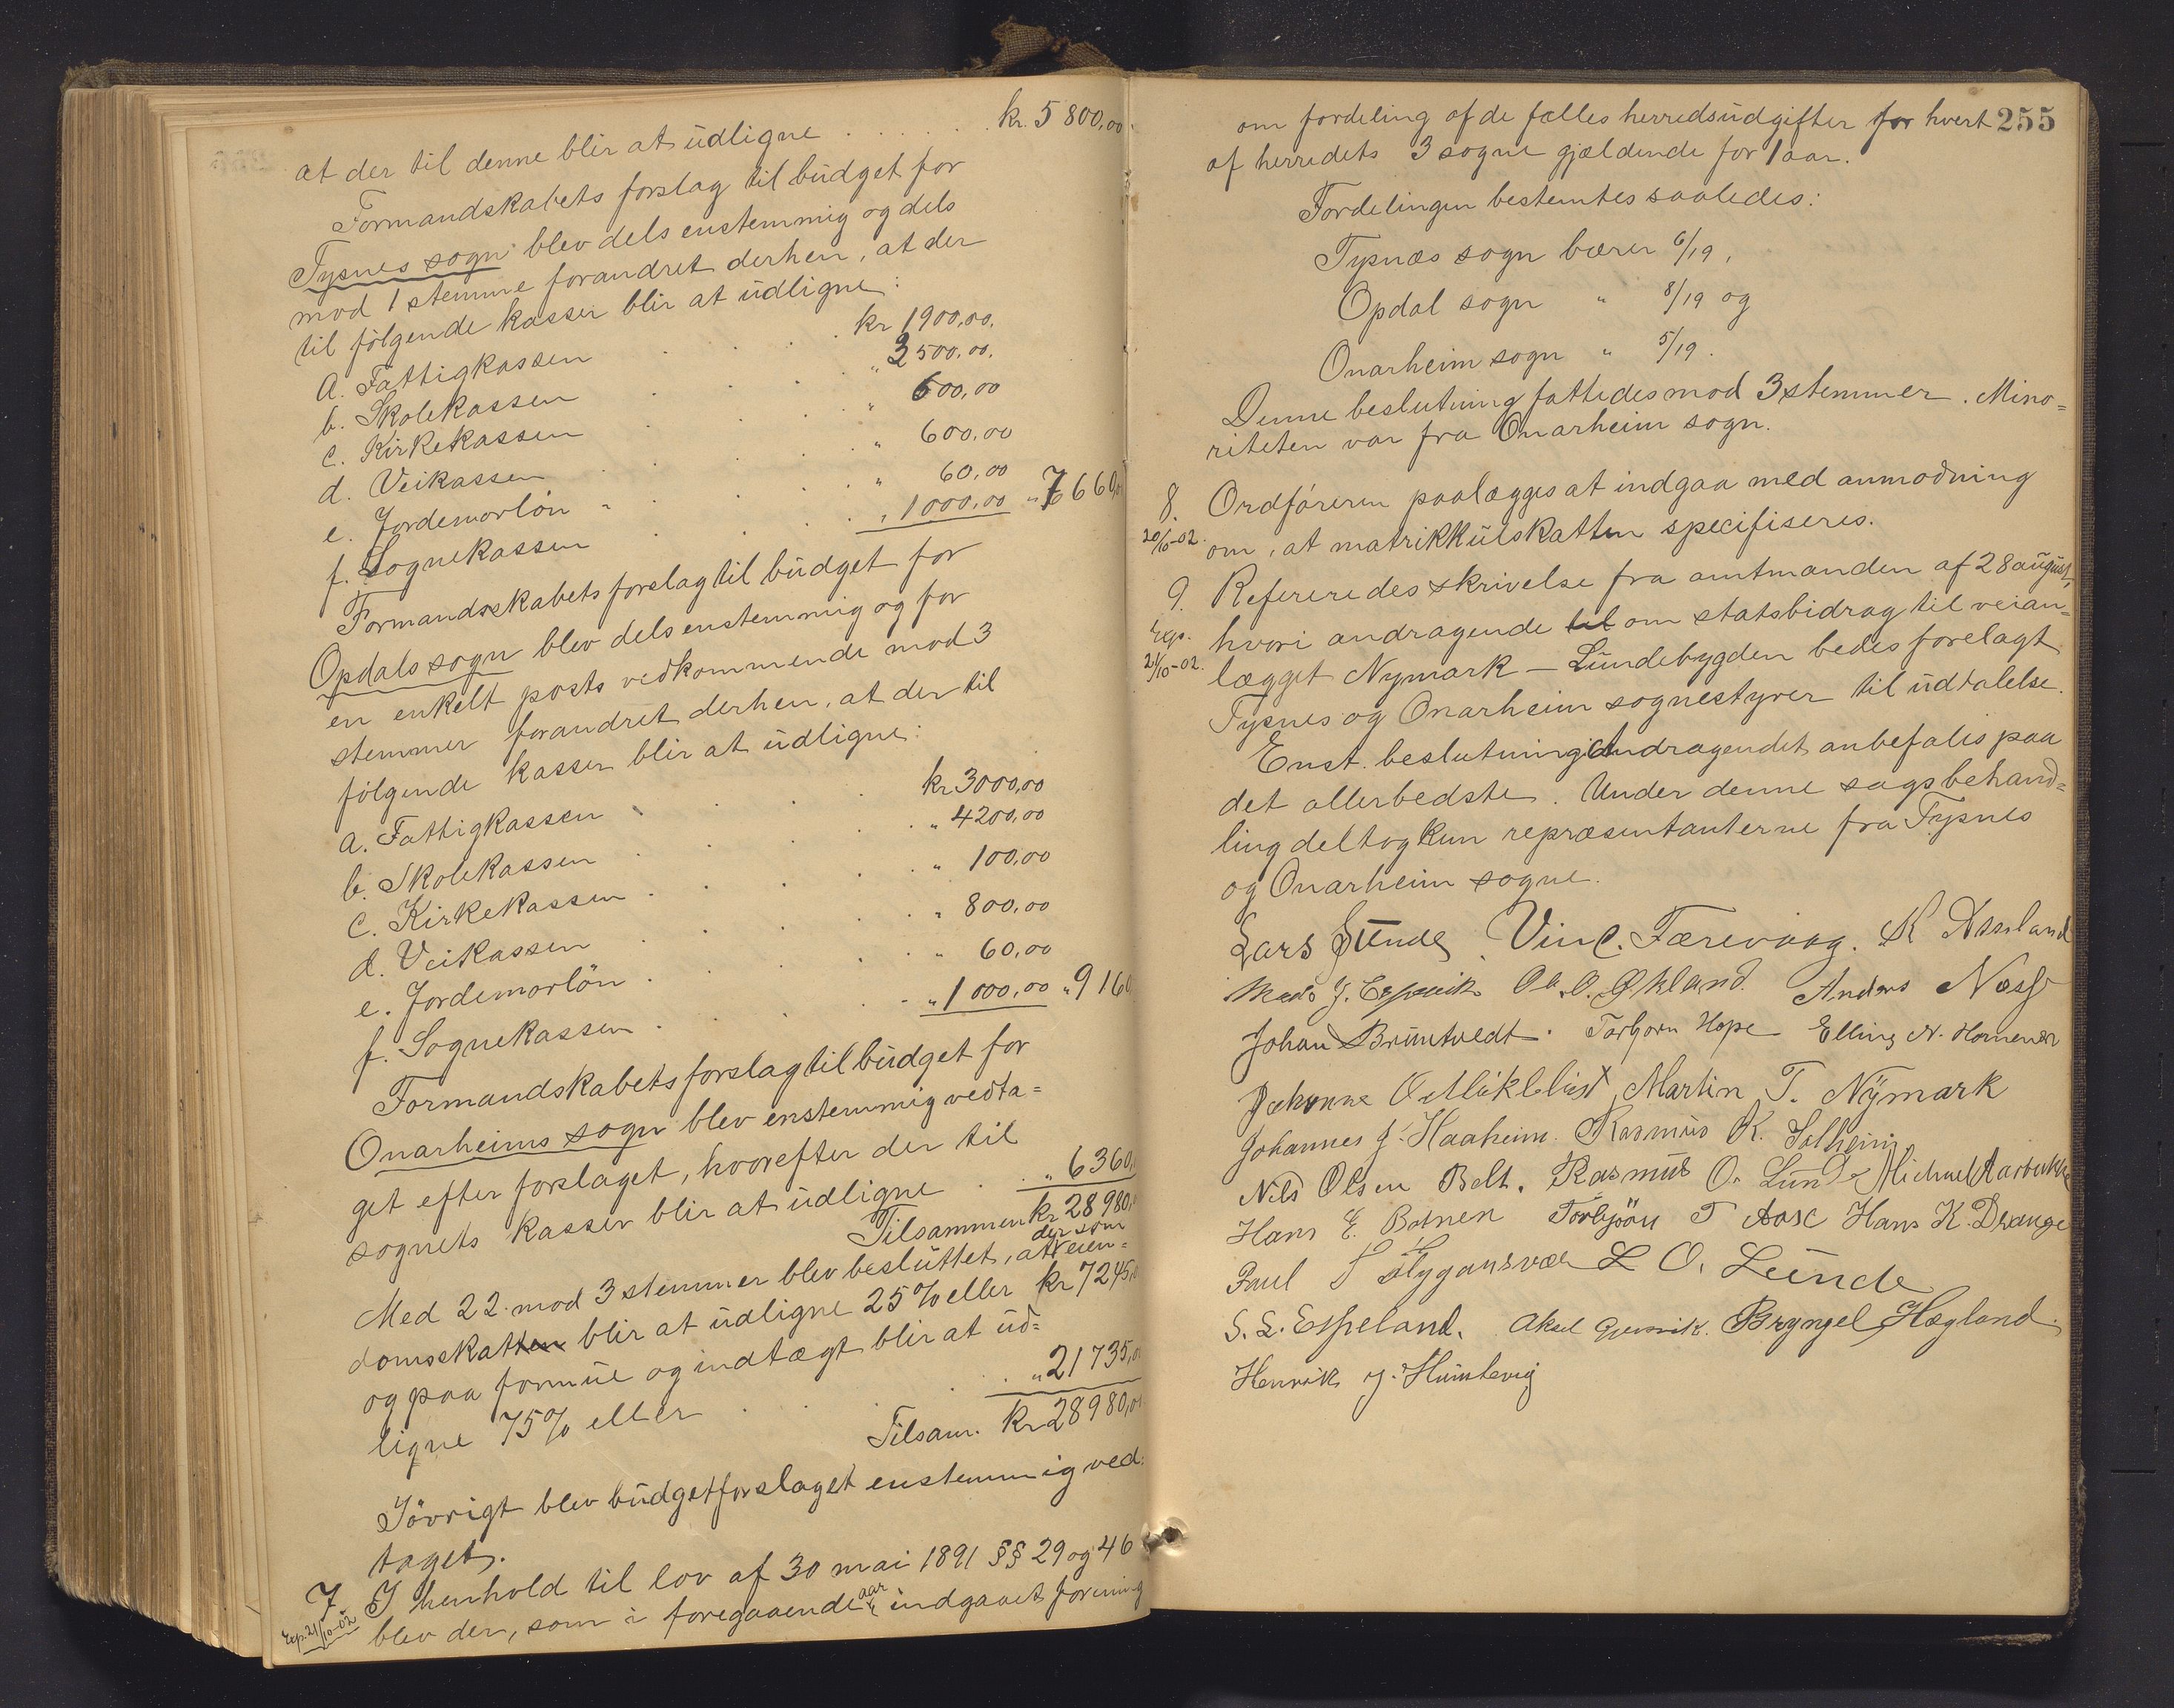 at der til denne blir at udligne . . . . . . kr. 5800,00.
Formandskabets forslag til budget for
Tysnes sogn blev dels enstemmig og dels
mod 1 stemme forandret derhen, at der
til følgende kasser blir at udligne:
a. Fattigkassen . . . . kr 1900,00.
b. Skolekassen . . . . " 3500,00.
c. Kirkekassen . . . . " 600,00
d. Veikassen . . . . " 600,00
e. Jordemorløn . . . . " 60,00
f. Sognekassen . . . . " 1000,00 " 7660,00
Formandsskabets forslag til budget for
Opdals sogn blev dels enstemmig og for
en enkelt posts vedkommende mod 3
stemmer forandret derhen, at der til
følgende kasser blir at udligne:
a. Fattigkassen . . . . kr 3000,00
b. Skolekassen . . . . " 4200,00
c. Kirkekassen . . . . " 100,00
d. Veikassen . . . . " 800,00
e. Jordemorløn . . . . " 60,00
f. Sognekassen . . . . " 1000,00 " 9160,
Formandskabets forslag til budget for
Onarheims sogn blev enstemmig vedta=
get efter forslaget, hvorefter der til
sognets kasser blir at udligne . . " 6360,
Tilsammen kr 28980,
Med 22 mod 3 stemmer blev besluttet, at der som eien=
domsskatten blir at udligne 25% eller kr 7245,0
og paa formue og indtægt blir at ud=
ligne 75% eller . . . . " 21735,0
Tilsam. kr 28980,0
Iøvrigt blev budgetforslaget enstemmig ved=
taget.
7. I henhold til lov af 30 mai 1891 §§ 29 og 46
Exp. 21/10-02 blev den, som i foregaaende aar indgaaet forening
255
om fordeling af de fælles herredsudgifter for hvert
af herredets 3 sogne gjældende for 1 aar.
Fordelingen bestemtes saaledes:
Tysnæs sogn bærer 6/19,
Opdal sogn " 8/19 og
Onarheim sogn " 5/19.
Denne beslutning fattedes mod 3 stemmer. Mino=
riteten var fra Onarheim sogn.
8. Ordføreren paalægges at indgaa med anmodning
20/10-02. om, at matrikkulskatten specifiseres.
9. Refereredes skrivelse fra amtmanden af 28 august,
Exp. hvori andragende til om statsbidrag til veian=
21/10-02. lægget Nymark – Lundebygden bedes forelagt
Tysnes og Onarheim sognestyrer til udtalelse.
Enst. beslutning: Andragendet anbefales paa
det allerbedste. Under denne sags behand=
ling deltog kun repræsentanterne fra Tysnes
og Onarheim sogne.
Lars Lunde, Vinc. Færevaag. K Aseland
Mads J. Espevik Ole O. Økland. Anders Næss
Johan Bruntvedt. Torbjørn Hope Elling N.
Johannes O Miklebust, Martin T. Nymark
Johannes J. Haaheim. Rasmus K. Solheim
Nils Olsen Belt. Rasmus O. Lunde Michael Aarbakke
Hans E. Botnen Torbjørn T Aase Hans K. Drange
Paul L O. Lunde
S. L. Espeland. Aksel Gjersvik. Bryngel Høgland.
Henrik J.